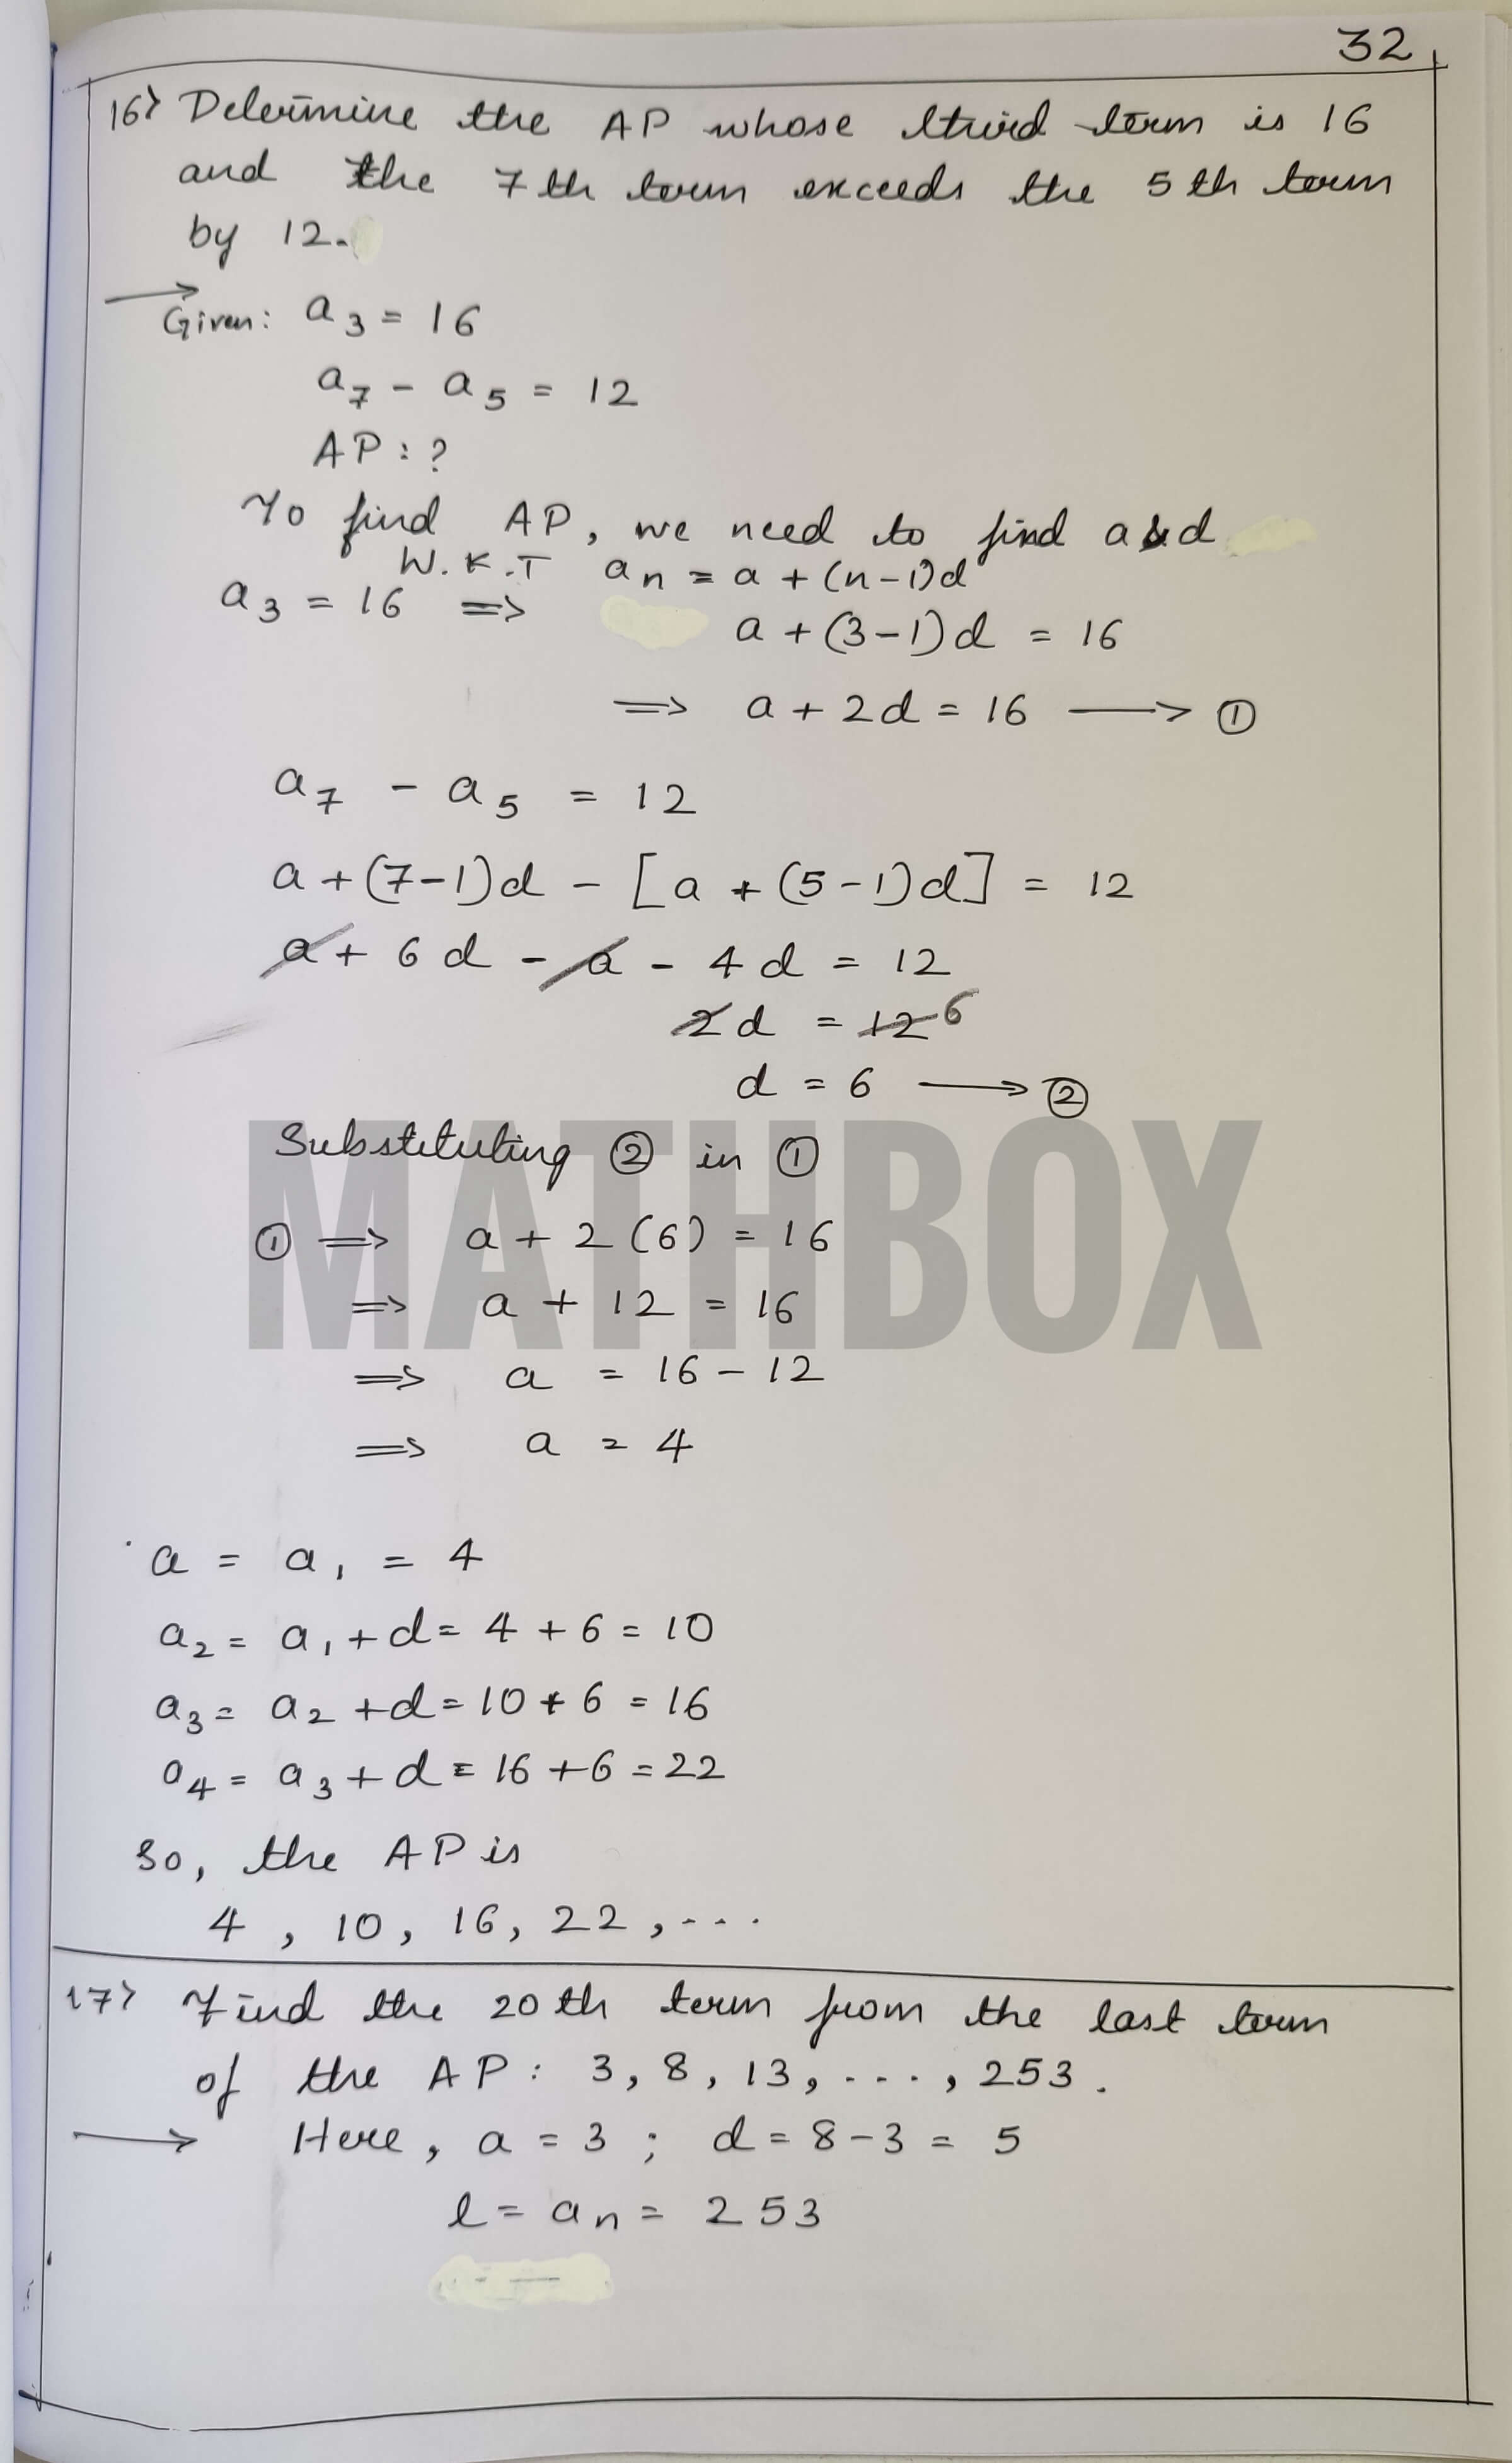 32
16> Determine the AP whose third term is 16
and the 7th term exceeds the 5th term
by 12.
Given: a₃ = 16
a₇ - a₅ = 12
AP : ?
To find AP, we need to find a & d
W.K.T aₙ = a + (n-1)d
a₃ = 16 => a + (3-1)d = 16
=> a + 2d = 16 ⟶ ①
a₇ - a₅ = 12
a + (7-1)d - [a + (5-1)d] = 12
a + 6d - a - 4d = 12
2d = 12 6
d = 6 ⟶ ②
Substituting ② in ①
MATHBOX
① => a + 2(6) = 16
=> a + 12 = 16
=> a = 16 - 12
=> a = 4
a = a₁ = 4
a₂ = a₁ + d = 4 + 6 = 10
a₃ = a₂ + d = 10 + 6 = 16
a₄ = a₃ + d = 16 + 6 = 22
So, the AP is
4 , 10, 16, 22, ...
17> Find the 20th term from the last term
of the AP : 3, 8, 13, ..., 253.
⟶ Here, a = 3 ; d = 8 - 3 = 5
l = aₙ = 253